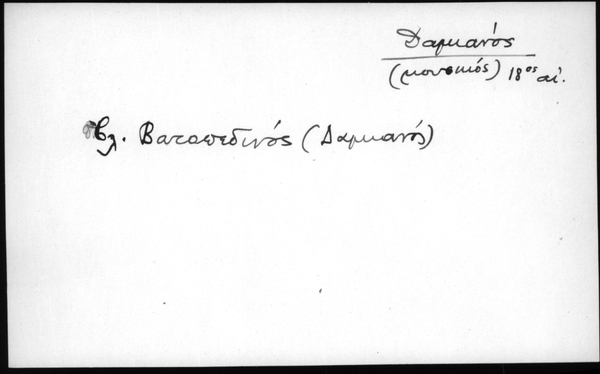 Δαμιανός
(μουσικός) 18ος αἰ.
βλ. Βατοπεδινός (Δαμιανός)